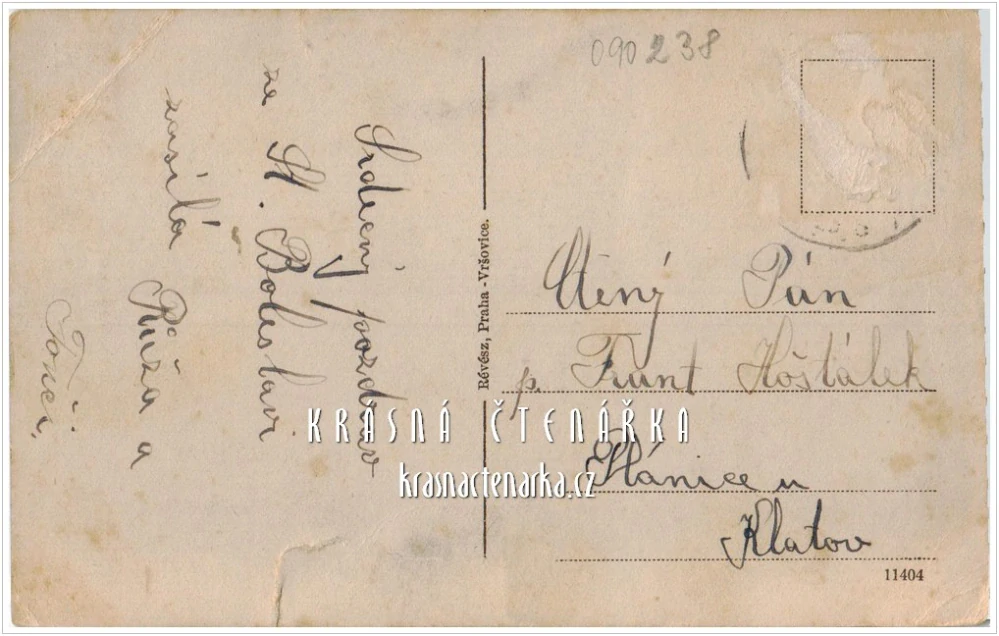 090238
Srdečný pozdrav
ze St. Boleslavi
zasílá
Růža a
Tonči.
Révész, Praha-Vršovice.
Ctěný Pán
p. Frant Hošťálek
Klatov
11404
KRÁSNÁ ČTENÁŘKA
krasnactenarka.cz